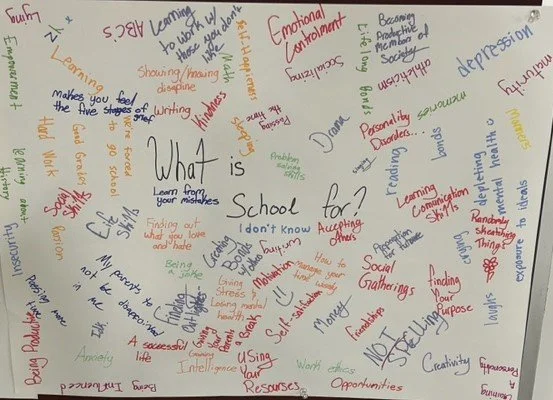 Lying
Empowerment
1/2 x
ABC's
Learning
to work w/
those you don't
like
Self-Happieness
Math
Emotional
Controlment
Socializing
Life long Bonds
Becoming
Productive
members of
Society
athleticism
depression
maturity
Learning
Showing/Knowing
disapline
makes you feel
the five stages of grief
Writing
Kindness
Sleeping
Passing
the time
Drama
memories
Personality
Disorders...
manners
Hard Work
Good Grades
we're forced
to go school
What is
School for?
Problem
solving skills
reading
bonds
depleting
mental health
exposure to ideals
Learning about
History
Social
Skills
Life
Skills
Learn from
your mistakes
I don't know
Learning
Comunication
Skills
Randomly
Sketching
Things
Insecurity
Passion
Finding out
what you love
and hate
Creating
Bonds
w/ others
writing
Accepting
others
Preparation
for future
caring
Being
a joke
My parents to
not be disappointed
in me
Idk
Finding
Giving
Stress &
Losing mental
health
Motivation
How to
Manage your
time wisely
Social
Gatherings
finding
Your
Purpose
laughs
Being Productive
Anxiety
A successful
life
Giving
your
Parents
a Break
Gaining
Intelligence
Self-satisfaction
Money
friendships
NOT
Spelling
Creativity
Being Influenced
Using
Your
Resourses
Work ethics
Opportunities
Gaining
A
Personality